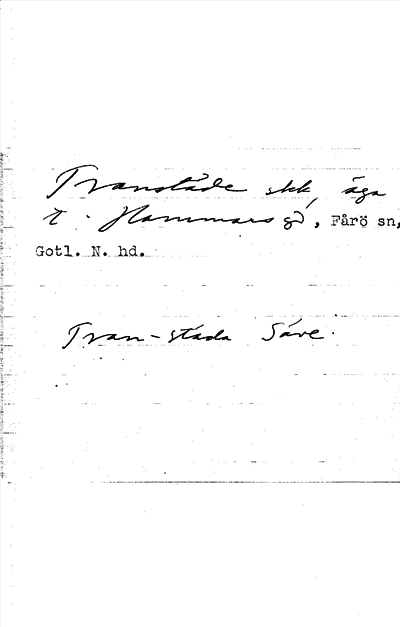 Tranståde skk, äga
t. Hammars gd, Fårö sn,
Gotl. N. hd.
Tran-stada Säve.